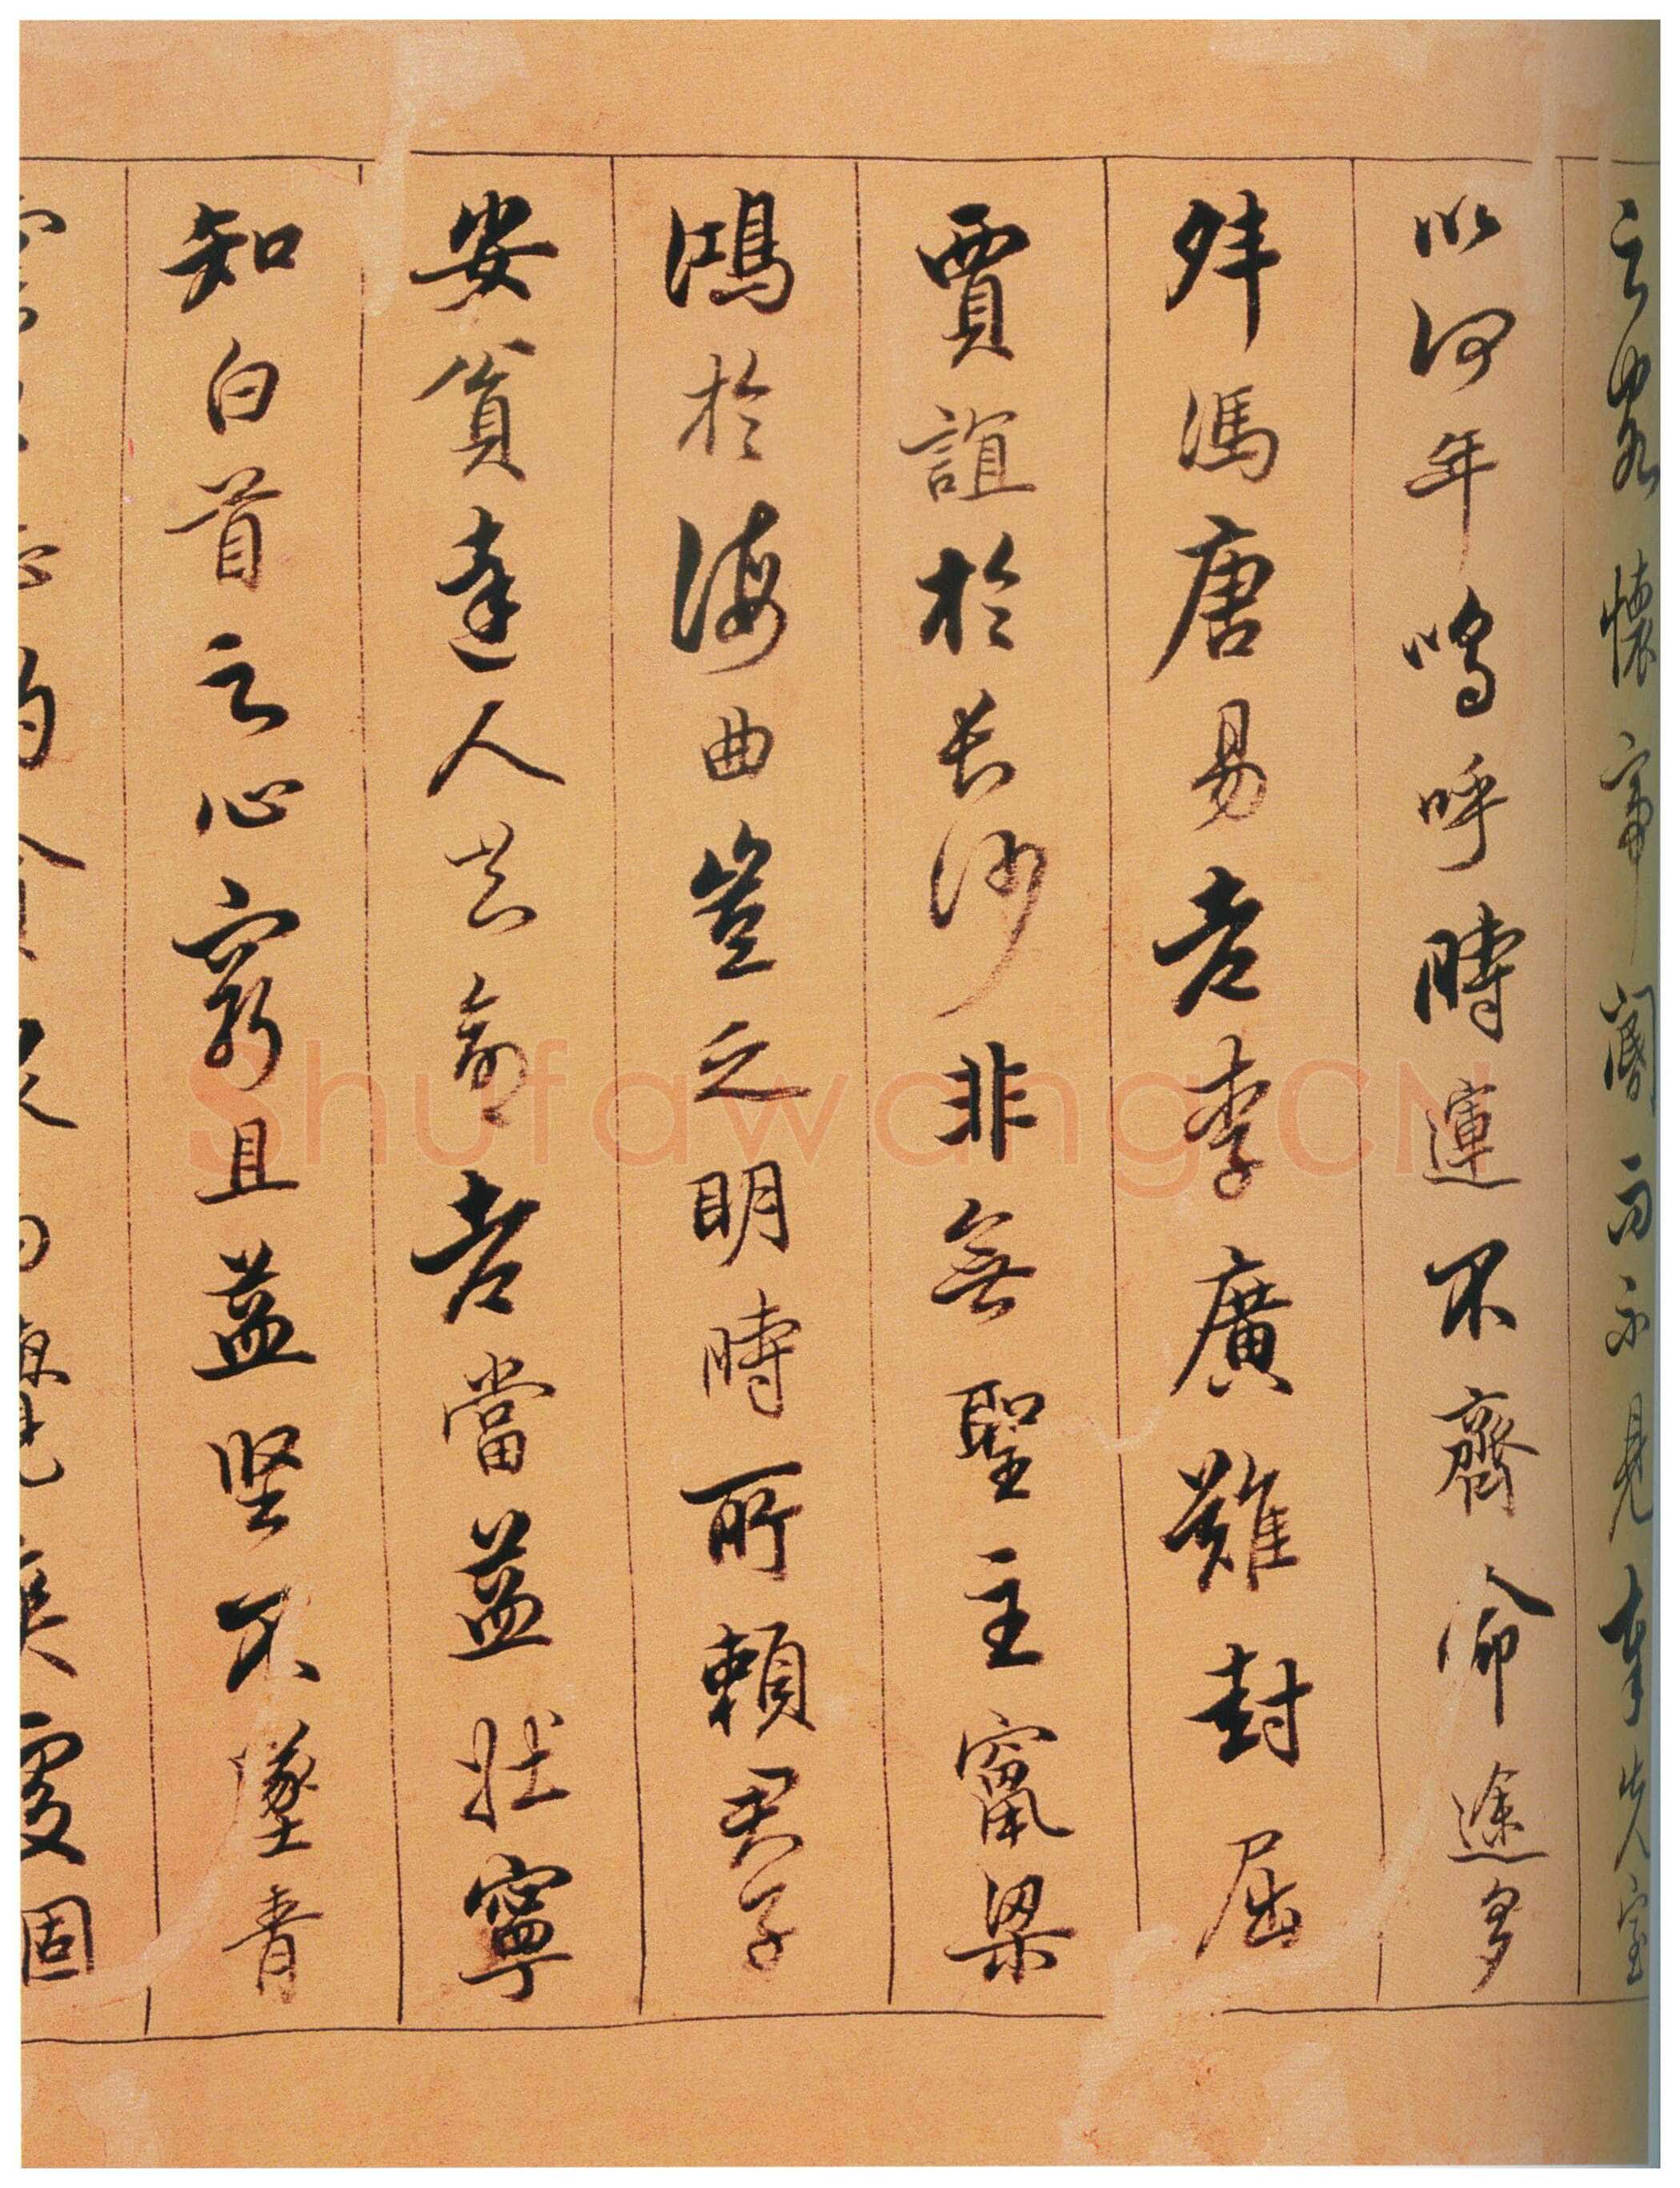 之客懷帝閽而不見奉室
以何年嗚呼時運不齊命途多
舛馮唐易老李廣難封屈
賈誼於長沙非無聖主竄梁
鴻於海曲豈乏明時所賴君子
安貧達人共命老當益壯寧
知白首之心窮且益坚不墜青
雲之志酌貪泉而覺爽處涸
Shufawang.CN